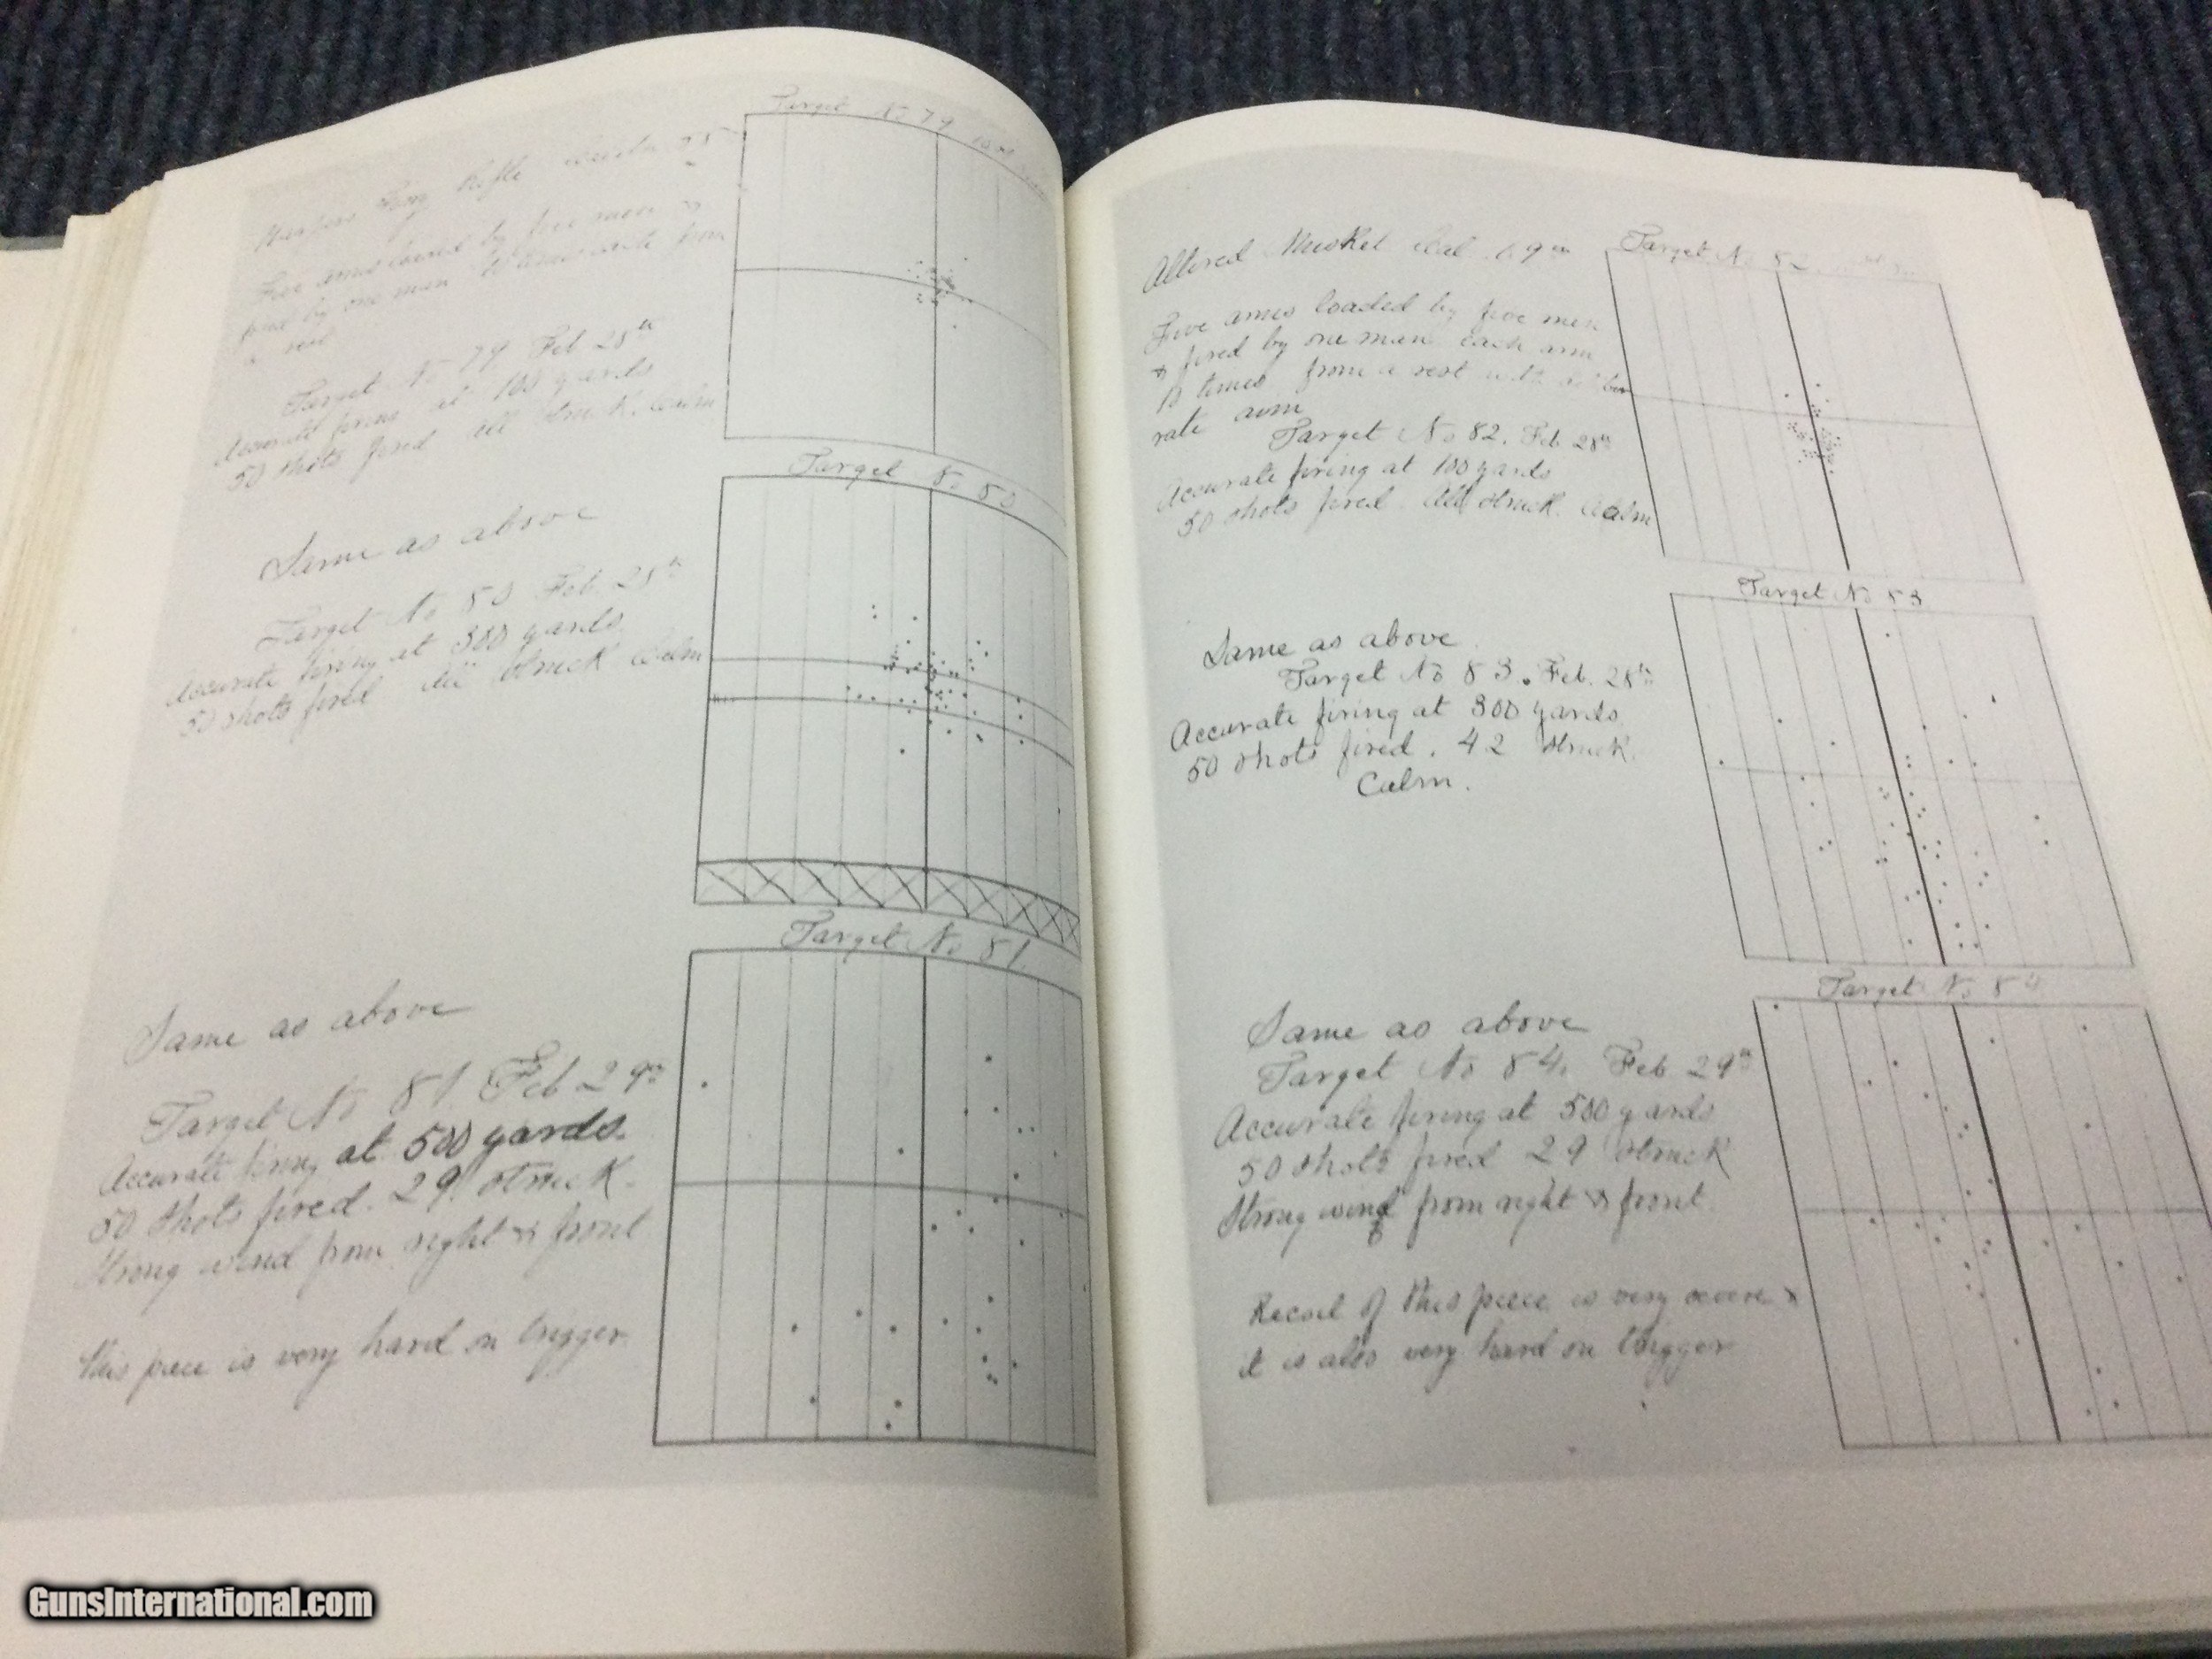 Target No 79
Harpers Ferry Rifle
Five arms loaded by five men &
fired by one man 10 times each from
a rest
Target No 79 Feb 28th
Accurate firing at 100 yards
50 shots fired all struck. Calm
Target No 80
Same as above
Target No 80 Feb 28th
Accurate firing at 300 yards
50 shots fired All struck Calm
Target No 81
Same as above
Target No 81 Feb 29th
Accurate firing at 500 yards.
50 shots fired. 29 struck.
Strong wind from right & front
This piece is very hard on trigger
Altered Musket Cal. .69in
Target No 82
Five arms loaded by five men
& fired by one man each arm
10 times from a rest with delibe
rate aim
Target No 82. Feb 28th
Accurate firing at 100 yards
50 shots fired. All struck. Calm
Target No 83
Same as above
Target No 83. Feb. 28th
Accurate firing at 300 yards
50 shots fired. 42 struck.
Calm.
Target No 84
Same as above
Target No 84. Feb 29th
Accurate firing at 500 yards
50 shots fired 29 struck
Strong wind from right & front.
Recoil of this piece is very severe &
it is also very hard on trigger
GunsInternational.com